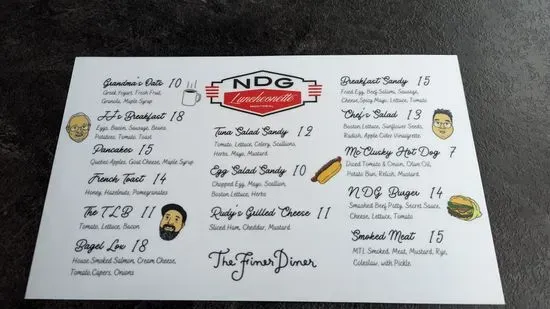 Grandma's Oats 10
Greek Yogurt, Fresh Fruit,
Granola, Maple Syrup
JJ's Breakfast 18
Eggs, Bacon, Sausage, Beans
Potatoes, Tomato, Toast
Pancakes 15
Quebec Apples, Goat Cheese, Maple Syrup
French Toast 14
Honey, Hazelnuts, Pomegranates
The TLB 11
Tomato, Lettuce, Bacon
Bagel Lox 18
House Smoked Salmon, Cream Cheese,
Tomato, Capers, Onions
NDG
Luncheonette
Tuna Salad Sandy 12
Tomato, Lettuce, Celery, Scallions,
Herbs, Mayo, Mustard
Egg Salad Sandy 10
Chopped Egg, Mayo, Scallion,
Boston Lettuce, Herbs
Rudy's Grilled Cheese 11
Sliced Ham, Cheddar, Mustard
The Finer Diner
Breakfast Sandy 15
Fried Egg, Beef Salami, Sausage,
Cheese, Spicy Mayo, Lettuce, Tomato
Chef's Salad 13
Boston Lettuce, Sunflower Seeds,
Radish, Apple Cider Vinaigrette
McClusky Hot Dog 7
Diced Tomato & Onion, Olive Oil,
Potato Bun, Relish, Mustard
NDG Burger 14
Smashed Beef Patty, Secret Sauce,
Cheese, Lettuce, Tomato
Smoked Meat 15
MTL Smoked, Meat, Mustard, Rye,
Coleslaw, with Pickle